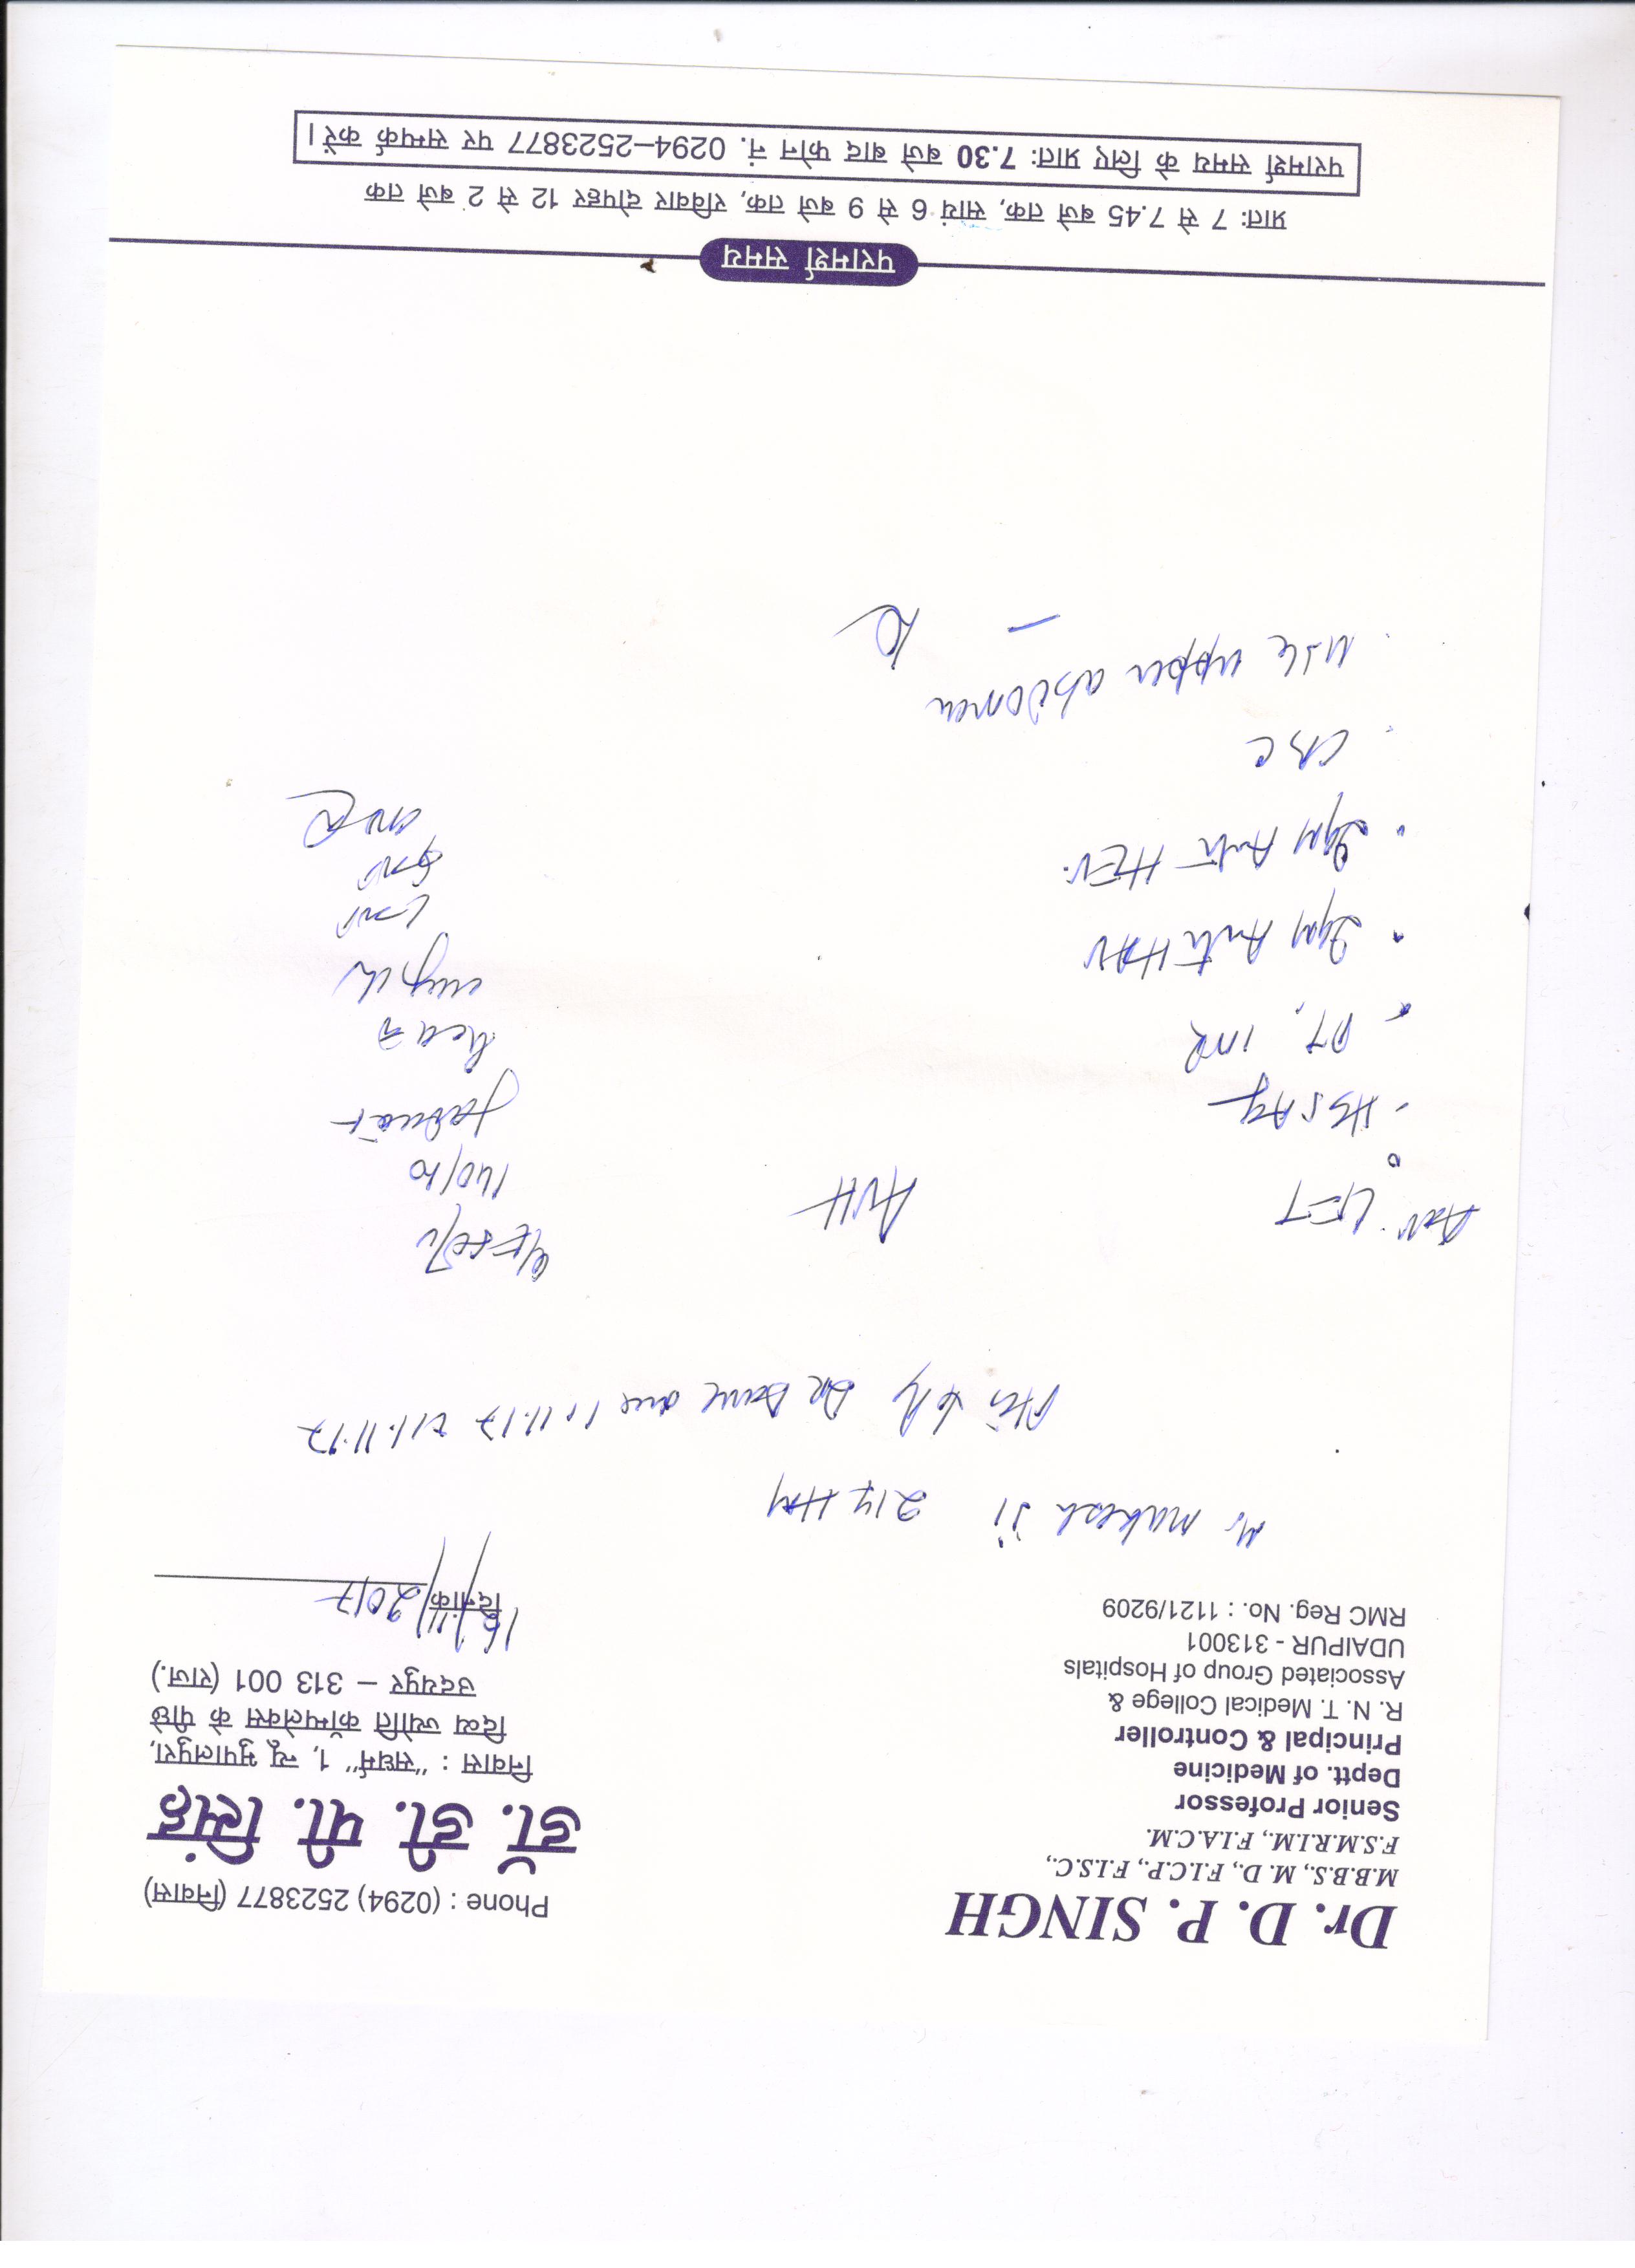 Dr. D. P. SINGH
M.B.B.S., M. D., F.I.C.P., F.I.S.C.,
F.S.M.R.I.M., F.I.A.C.M.
Senior Professor
Deptt. of Medicine
Principal & Controller
R. N. T. Medical College &
Associated Group of Hospitals
UDAIPUR - 313001
RMC Reg. No. : 1121/9209
Phone : (0294) 2523877 (निवास)
डॉ. डी. पी. सिंह
निवास : "सधर्म" 1, न्यू भुपालपुरा,
दिव्य ज्योति कॉम्पलेक्स के पीछे
उदयपुर – 313 001 (राज.)
दिनांक 16/11/2017
Mr Mahesh Ji 21Y
Dr Dave 11.11.17
LFT
HBsAg
PT, INR
IgM Anti HAV
IgM Anti HEV
CBC
USG upper abdomen
AVH
140/
CNS
परामर्श समय
प्रातः 7 से 7.45 बजे तक, सायं 6 से 9 बजे तक, रविवार दोपहर 12 से 2 बजे तक
परामर्श समय के लिए प्रातः 7.30 बजे बाद फोन नं. 0294–2523877 पर सम्पर्क करें।